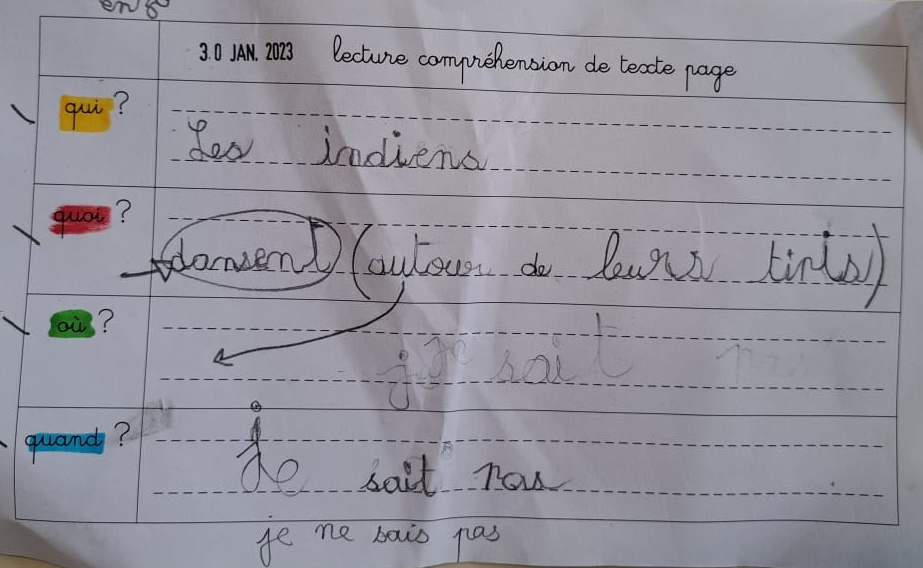 30 JAN. 2023 lecture compréhension de texte page
qui ?
Les indiens
quoi ?
dansent (autour de leurs tipis)
où ?
je sait pas
quand ?
je sait pas
je ne sais pas